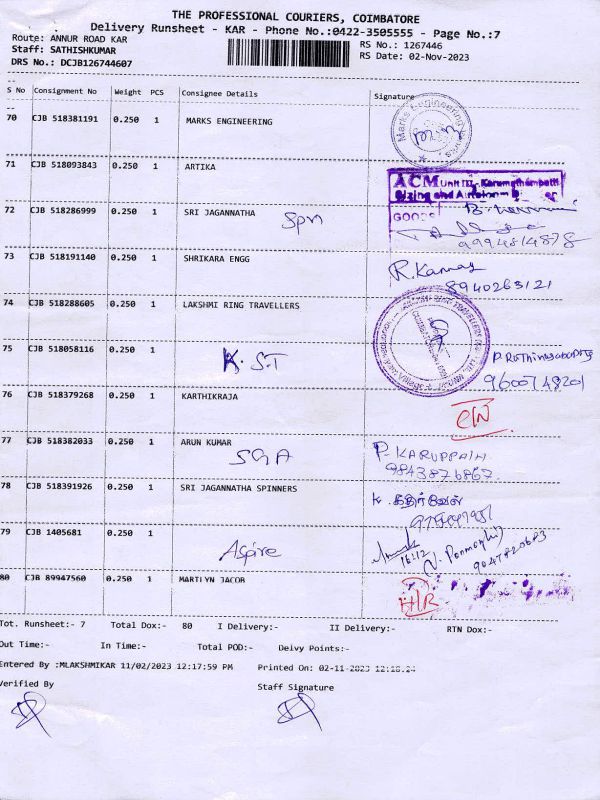 THE PROFESSIONAL COURIERS, COIMBATORE
Delivery Runsheet - KAR - Phone No.:0422-3505555 - Page No.:7
Route: ANNUR ROAD KAR
RS No.: 1267446
Staff: SATHISHKUMAR
RS Date: 02-Nov-2023
DRS No.: DCJB126744607
S No Consignment No Weight PCS Consignee Details Signature
70 CJB 518381191 0.250 1 MARKS ENGINEERING
71 CJB 518093843 0.250 1 ARTIKA
ACM UNIT III - Karumathampatti
GOODS
72 CJB 518286999 0.250 1 SRI JAGANNATHA Spn
9994814878
73 CJB 518191140 0.250 1 SHRIKARA ENGG R. Kamaj
8940263121
74 CJB 518288605 0.250 1 LAKSHMI RING TRAVELLERS
75 CJB 518058116 0.250 1 K.S.T
9600749201
76 CJB 518379268 0.250 1 KARTHIKRAJA
77 CJB 518382033 0.250 1 ARUN KUMAR P. KARUPPAIH
SGA 9843876867
78 CJB 518391926 0.250 1 SRI JAGANNATHA SPINNERS க. கதிர்வேல்
79 CJB 1405681 0.250 1 Aspire
16:12
9047820683
80 CJB 89947560 0.250 1 MARTLYN JACOB
Tot. Runsheet:- 7 Total Dox:- 80 I Delivery:- II Delivery:- RTN Dox:-
Out Time:- In Time:- Total POD:- Delvy Points:-
Entered By :MLAKSHMIKAR 11/02/2023 12:17:59 PM Printed On: 02-11-2023 12:18:24
Verified By Staff Signature